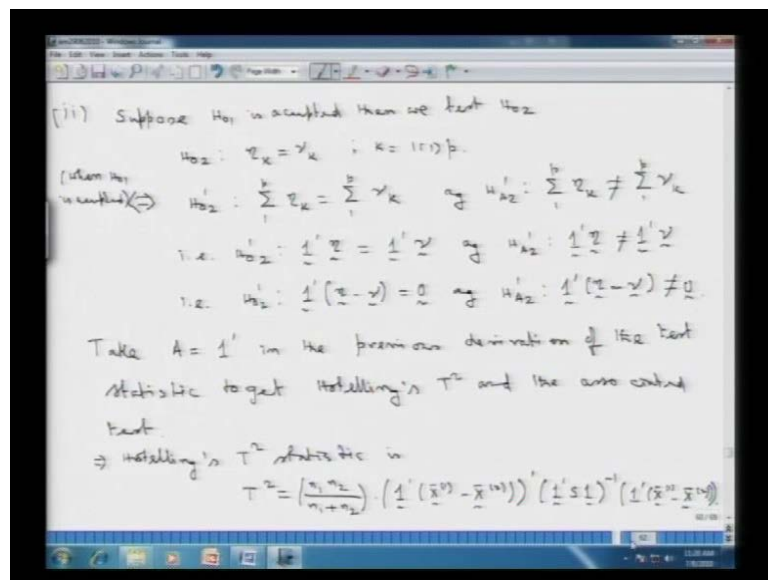 File Edit View Insert Actions Tools Help
Page Width
(ii) Suppose H₀₁ is accepted then we test H₀₂
H₀₂ : η_k = ν_k ; k = 1(1)p.
(when H₀₁ is accepted) (⇔) H₀₂' : Σ₁^p η_k = Σ₁^p ν_k ag H_A2' : Σ₁^p η_k ≠ Σ₁^p ν_k
i.e. H₀₂' : 1' η = 1' ν ag H_A2' : 1' η ≠ 1' ν
i.e. H₀₂' : 1' (η - ν) = 0 ag H_A2' : 1' (η - ν) ≠ 0.
Take A = 1' in the previous derivation of the test
statistic to get Hotelling's T² and the associated
test.
⇒ Hotelling's T² statistic is
T² = (n₁ n₂ / n₁ + n₂) · (1' (x̄⁽¹⁾ - x̄⁽²⁾))' (1' S 1)⁻¹ (1' (x̄⁽¹⁾ - x̄⁽²⁾))
11:20 AM